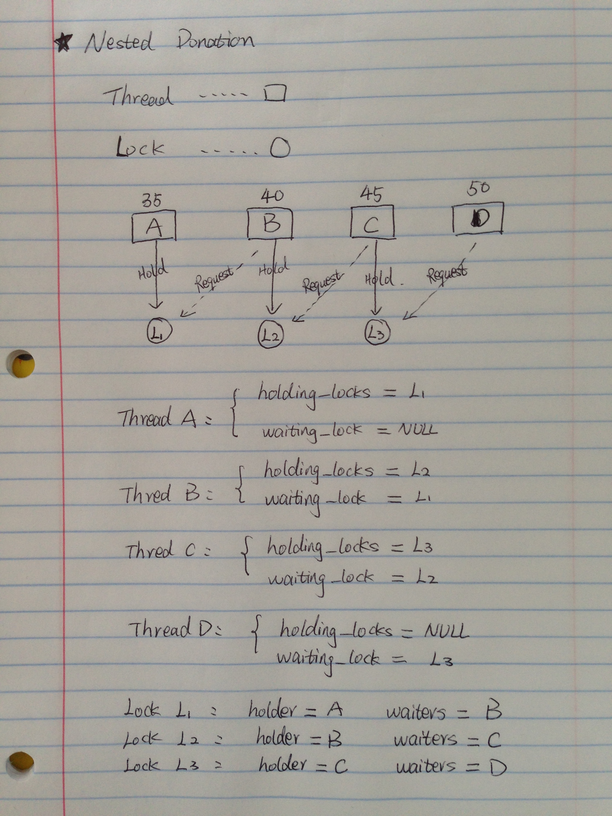 ★ Nested Donation
Thread ----- □
Lock ..... ○
35 40 45 50
A B C D
Hold Request Hold Request Hold. Request
L1 L2 L3
Thread A: { holding_locks = L1
waiting_lock = NULL
Thred B: { holding_locks = L2
waiting_lock = L1
Thred C: { holding_locks = L3
waiting_lock = L2
Thread D: { holding_locks = NULL
waiting_lock = L3
Lock L1: holder = A waiters = B
Lock L2: holder = B waiters = C
Lock L3: holder = C waiters = D